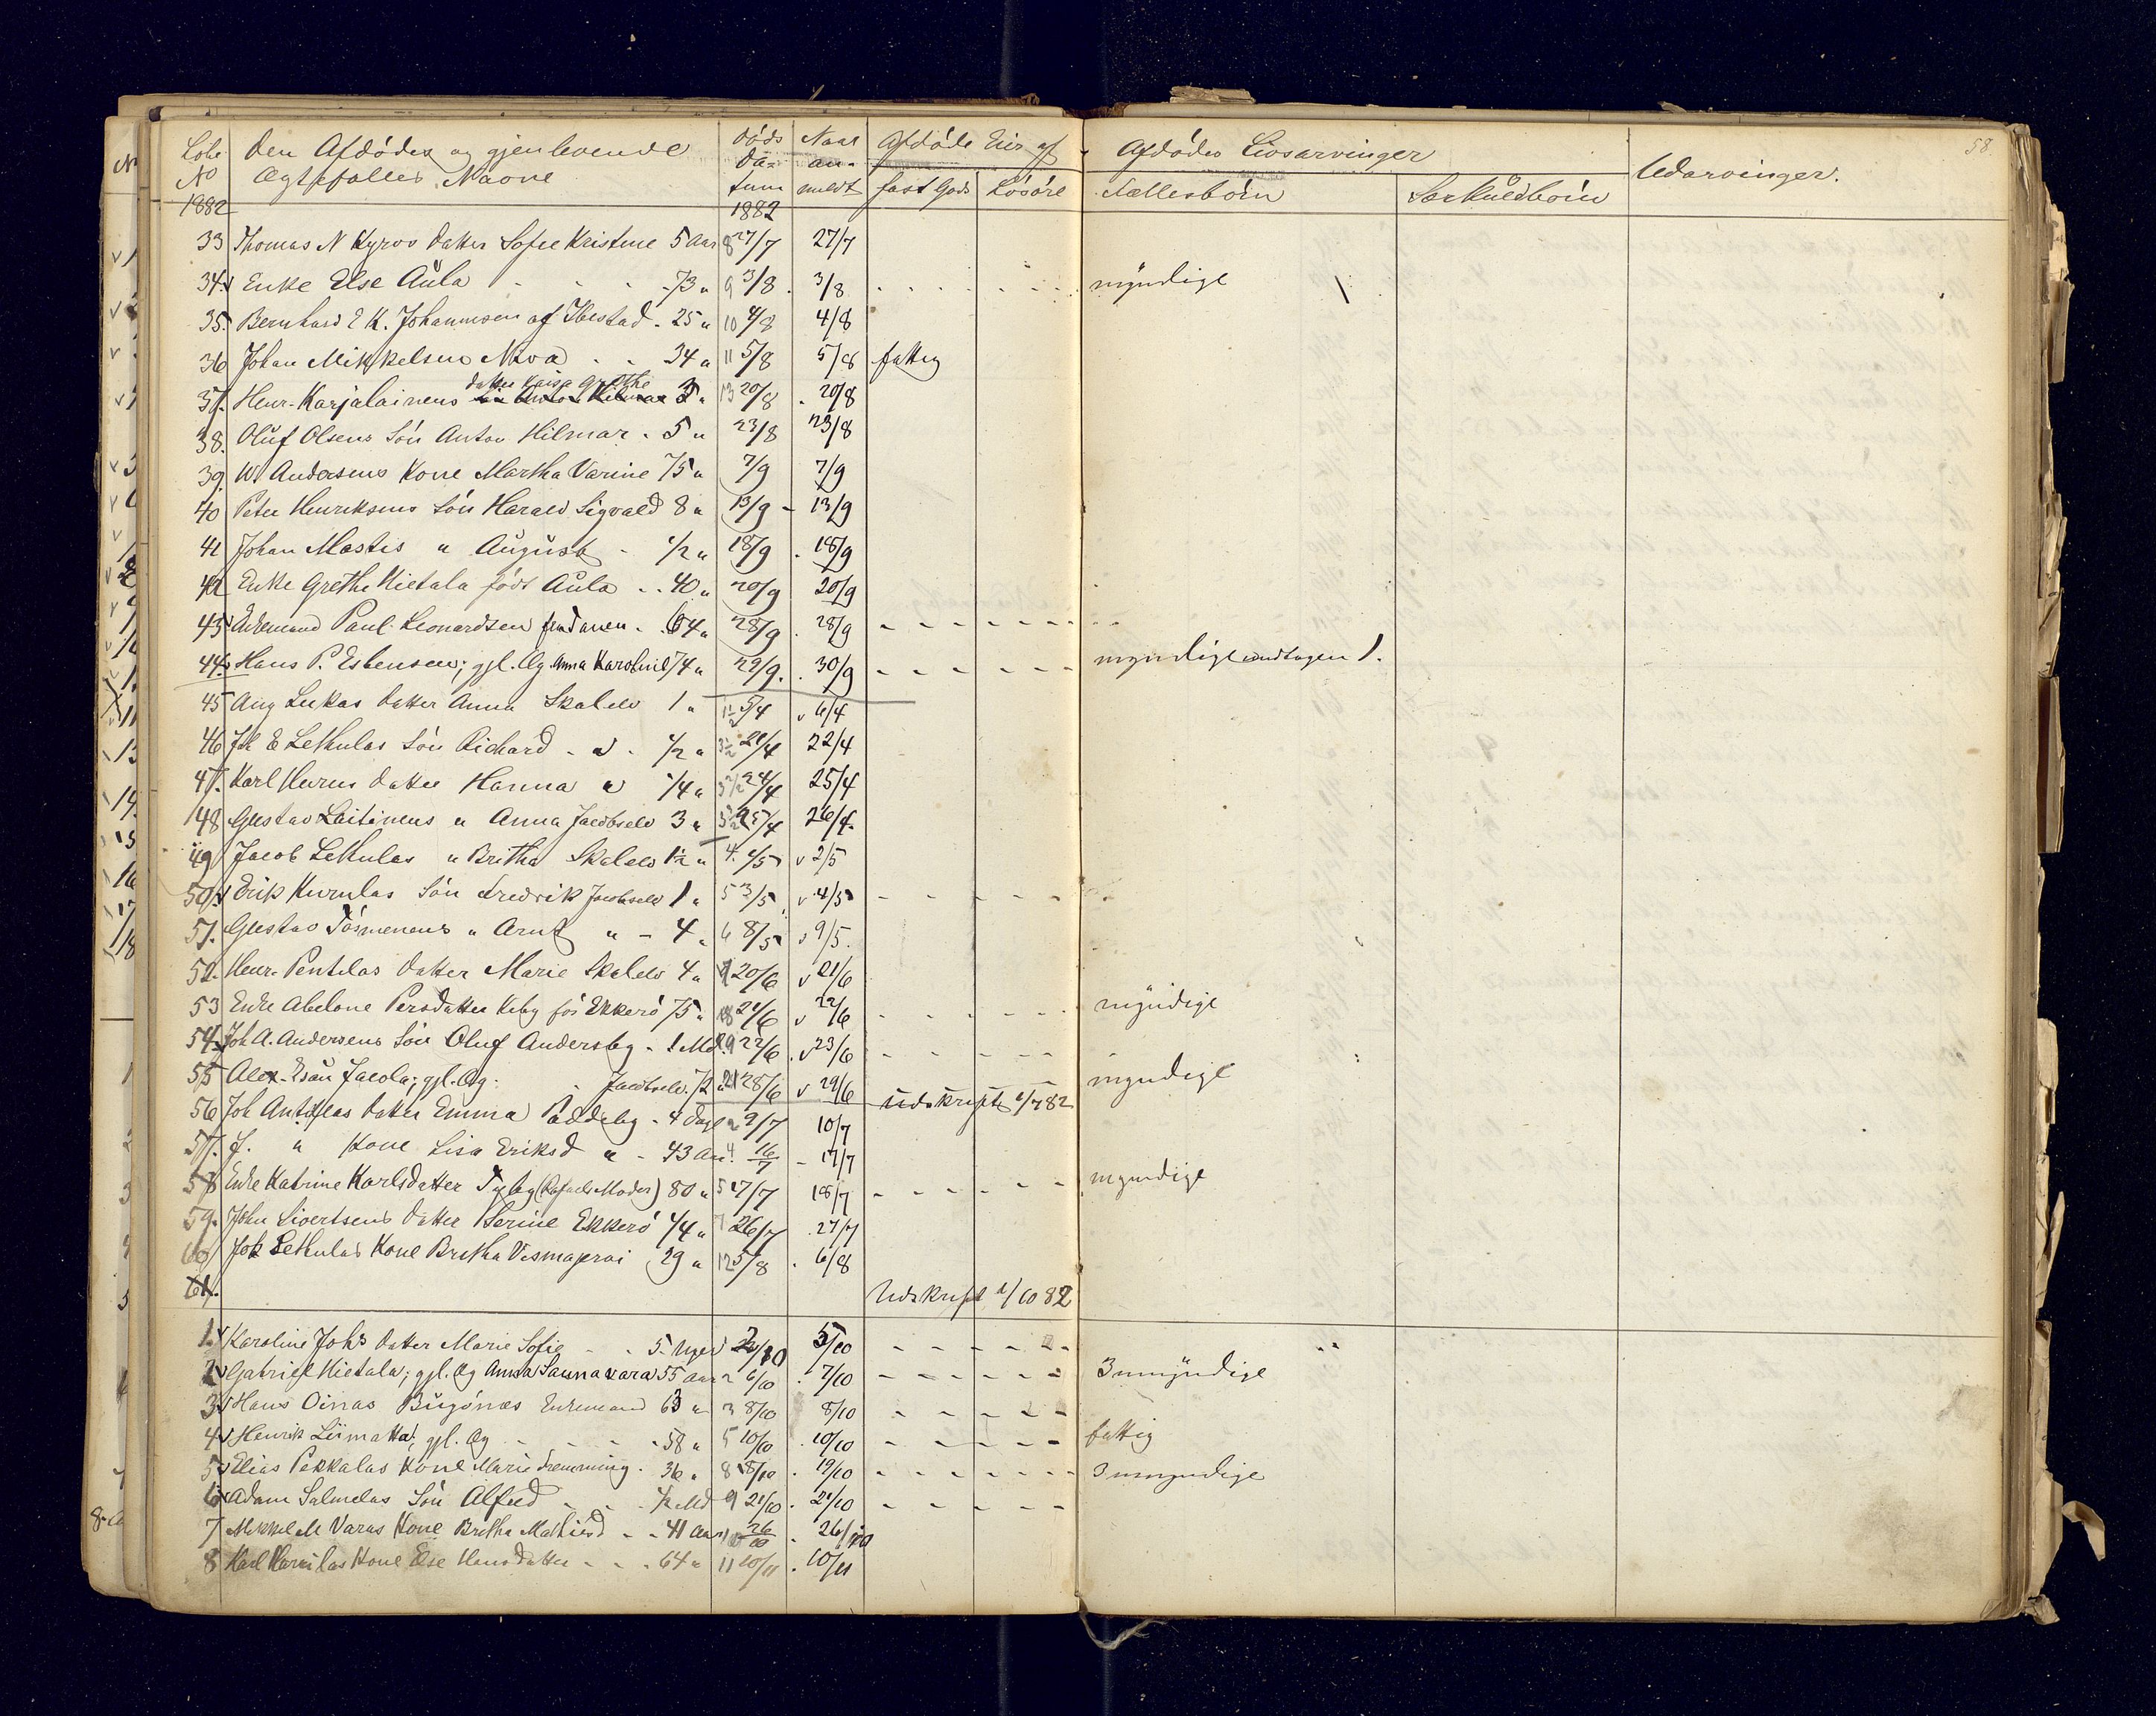 Løbe Den Afdødes og gjenlevende Døds Naar Afdøde Eier af Afdødes Livsarvinger Udarvinger. 58
No Ægtefælles Navne Da- an-
1882 tum meldt fast Gods Løsøre Fællesbørn Særkuldbørn
1882
33 Thomas N Kyros Datter Sofie Kristine 5 Aar 8 27/7 27/7
34. Enke Else Aula - - - 73 " 9 3/8 . 3/8 - - - - - - - myndige
35. Bernhard E K. Johannesen af Ibestad - 25 " 10 4/8 4/8
36 Johan Mikkelsen Niva - - 34 " 11 5/8 5/8 fattig
37. Henr. Karjalainens Datter Kaisa Grethe 3 " 13 20/8 . 20/8
38. Oluf Olsens Søn Anton Hilmar - 5 " 23/8 23/8
39. W. Andersens Kone Martha Varine 75 " 7/9 7/9
40 Peter Henriksens Søn Harald Sigvald 8 " 13/9 - 13/9
41 Johan Mastis " August - 1/2 " 18/9 . 18/9
42 Enke Grethe Nietala født Aula - - 40 " 20/9 20/9
43 Enkemand Paul Leonardsen - 64 " 28/9 . 28/9 - - - - - - -
44. Hans P. Esbensen; gjl. Æg. Anna Karoline 74 " 29/9. . 30/9 - - - - - - myndige undtagen 1.
45 Aug Lukas Datter Anna Skalelv 1 " 5/4 v 6/4
46 Joh E Lethulas Søn Richard - " - 1/2 " 21/4 22/4
47. Karl Datter Hanna " 1/4 " 24/4 25/4
48 Gustav Laitinens " Anna Jacobselv 3 " 25/4 26/4.
49 Jacob Lethulas " Britha Skalelv 1 1/2 " 4. 1/5 v 2/5
50. Erik Kurulas Søn Fredrik Jacobselv 1 " 5 3/5 v 4/5 - - - - -
51. Gustav Tósmenens " Arnt " - 4 " 6 8/5 v 9/5.
52. Henr. Pentilas Datter Marie Skalelv 4 " 20/6 v 21/6
53 Enke Abelone Persdatter Kiby før Ekkerö 75 " 21/6 v 22/6 - - - - - - myndige
54. Joh A. Andersens Søn Oluf Andersby - 1 Md. 22/6 . v 23/6 - - - - -
55 Alex. Esau Jacola; gjl. Æg: - Jacobselv. 72 " 21 28/6 v 29/6 - - - - - myndige
56 Joh Anttilas Datter Emma Paddeby - 4 Dage 2 9/7 10/7 Udskrift 1/7 82
57. J. " Kone Lisa Eriksd " - 43 Aar 4 16/7 - 17/7
58 Enke Katrine Karlsdatter Tyby (Rafaels Moder) 80 " 5 17/7 18/7 - - - - - - myndige
59. John Sivertsens Datter Serine Ekkerö 1/4 " 7 26/7 . 27/7
60 Joh Lethulas Kone Britha 29 " 12 5/8 . 6/8
61. Udskrift 1/10 82
1. Karoline Johs Datter Marie Sofie - - 5 Uger 2/10 5/10 - - - - - -
2 Gabriel Nietala; gjl. Æg Anna Saunavara 55 Aar 2 6/10 . 7/10 - - - - - - 3 umyndige
3 Hans Oinas Bugönæs Enkemand 63 " 3 8/10 8/10 - - - - -
4 Henrik Liimatta; gjl. Æg - - - - 58 " 5 10/10 . 10/10 - - - - - - fattig
5 Elias Pekkalas Kone Marie Fremming. 36 " 8 18/10 . 19/10 - - - - - - 3 umyndige
6 Adam Salmelas Søn Alfred - - - 1/2 Md 9 21/10 . 21/10 - - - - -
7 Mikkel M Varas Kone Britha Mathisd - - 41 Aar 26/10 . 26/10
8 Karl Kone Else Hansdatter - - - 64 " 11 10/11 . 10/11